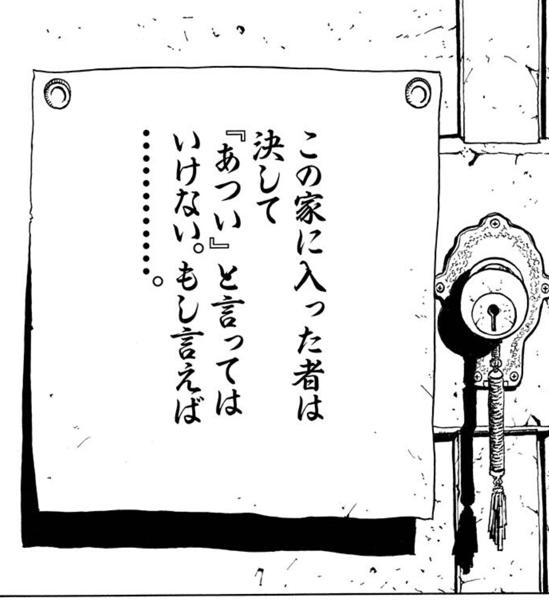 この家に入った者は
決して
『あつい』と言っては
いけない。もし言えば
・・・・・・・・・・。